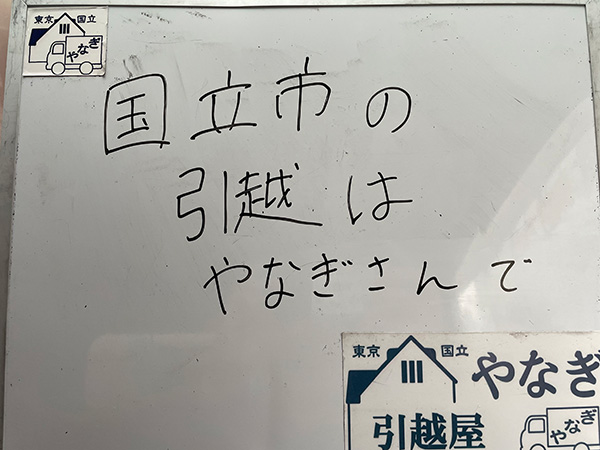 東京 国立
やなぎ
国立市の
引越は
やなぎさんで
東京 国立 やなぎ
引越屋 やなぎ